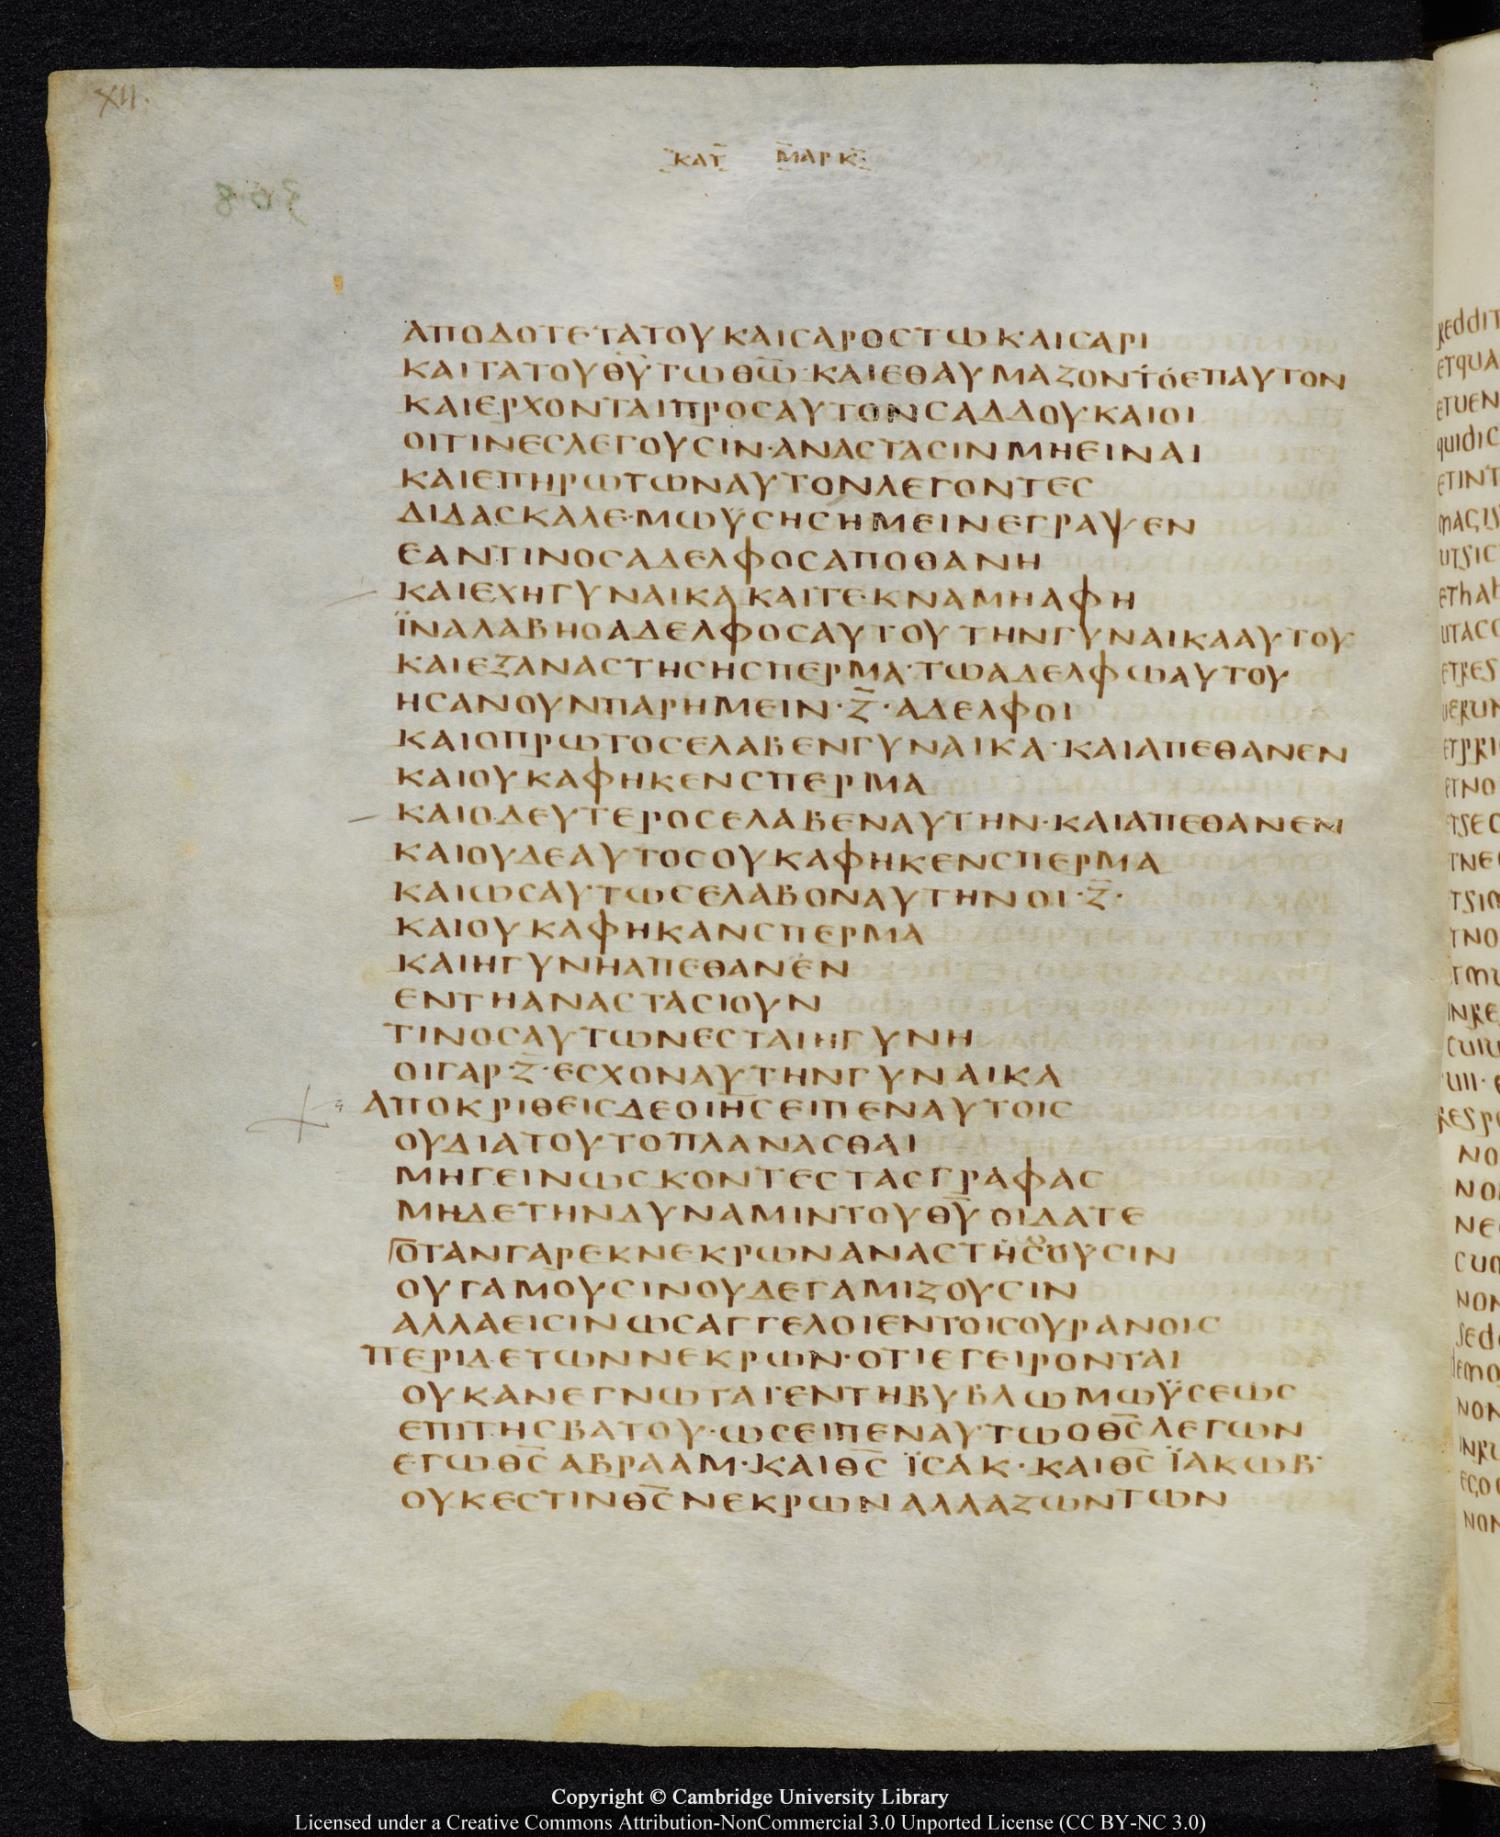 XII.
ΚΑΤ̅ Μ̅ΑΡΚ
308
ΑΠΟΔΟΤΕΤΑΤΟΥΚΑΙCΑΡΟCΤΩΚΑΙCΑΡΙ
ΚΑΙΤΑΤΟΥΘ̅Υ̅ΤΩΘ̅Ω̅·ΚΑΙΕΘΑΥΜΑΖΟΝΤΟΕΠΑΥΤΟΝ
ΚΑΙΕΡΧΟΝΤΑΙΠΡΟCΑΥΤΟΝCΑΔΔΟΥΚΑΙΟΙ
ΟΙΤΙΝΕCΛΕΓΟΥCΙΝ·ΑΝΑCΤΑCΙΝΜΗΕΙΝΑΙ
ΚΑΙΕΠΗΡΩΤΩΝΑΥΤΟΝΛΕΓΟΝΤΕC
ΔΙΔΑCΚΑΛΕ·ΜΩΥCΗCΗΜΕΙΝΕΓΡΑΨΕΝ
ΕΑΝΤΙΝΟCΑΔΕΛΦΟCΑΠΟΘΑΝΗ
ΚΑΙΕΧΗΓΥΝΑΙΚΑΚΑΙΤΕΚΝΑΜΗΑΦΗ
ΪΝΑΛΑΒΗΟΑΔΕΛΦΟCΑΥΤΟΥΤΗΝΓΥΝΑΙΚΑΑΥΤΟΥ
ΚΑΙΕΞΑΝΑCΤΗCΗCΠΕΡΜΑ·ΤΩΑΔΕΛΦΩΑΥΤΟΥ
ΗCΑΝΟΥΝΠΑΡΗΜΕΙΝ·Ζ̅·ΑΔΕΛΦΟΙ
ΚΑΙΟΠΡΩΤΟCΕΛΑΒΕΝΓΥΝΑΙΚΑ·ΚΑΙΑΠΕΘΑΝΕΝ
ΚΑΙΟΥΚΑΦΗΚΕΝCΠΕΡΜΑ
ΚΑΙΟΔΕΥΤΕΡΟCΕΛΑΒΕΝΑΥΤΗΝ·ΚΑΙΑΠΕΘΑΝΕΝ
ΚΑΙΟΥΔΕΑΥΤΟCΟΥΚΑΦΗΚΕΝCΠΕΡΜΑ
ΚΑΙΩCΑΥΤΩCΕΛΑΒΟΝΑΥΤΗΝΟΙ·Ζ̅·
ΚΑΙΟΥΚΑΦΗΚΑΝCΠΕΡΜΑ
ΚΑΙΗΓΥΝΗΑΠΕΘΑΝΕΝ
ΕΝΤΗΑΝΑCΤΑCΙΟΥΝ
ΤΙΝΟCΑΥΤΩΝΕCΤΑΙΗΓΥΝΗ
ΟΙΓΑΡ·Ζ̅·ΕCΧΟΝΑΥΤΗΝΓΥΝΑΙΚΑ
ΑΠΟΚΡΙΘΕΙCΔΕΟΙ̅Η̅C̅ΕΙΠΕΝΑΥΤΟΙC
ΟΥΔΙΑΤΟΥΤΟΠΛΑΝΑCΘΑΙ
ΜΗΓΕΙΝΩCΚΟΝΤΕCΤΑCΓΡΑΦΑC
ΜΗΔΕΤΗΝΔΥΝΑΜΙΝΤΟΥΘ̅Υ̅ΟΙΔΑΤΕ
ΟΤΑΝΓΑΡΕΚΝΕΚΡΩΝΑΝΑCΤΗCΟΥCΙΝ
ΟΥΓΑΜΟΥCΙΝΟΥΔΕΓΑΜΙΖΟΥCΙΝ
ΑΛΛΑΕΙCΙΝΩCΑΓΓΕΛΟΙΕΝΤΟΙCΟΥΡΑΝΟΙC
ΠΕΡΙΔΕΤΩΝΝΕΚΡΩΝ·ΟΤΙΕΓΕΙΡΟΝΤΑΙ
ΟΥΚΑΝΕΓΝΩΤΑΙΕΝΤΗΒΥΒΛΩΜΩΫCΕΩC
ΕΠΙΤΗCΒΑΤΟΥ·ΩCΕΙΠΕΝΑΥΤΩΟΘ̅C̅ΛΕΓΩΝ
ΕΓΩΘ̅C̅ΑΒΡΑΑΜ·ΚΑΙΘ̅C̅ΪCΑΚ·ΚΑΙΘ̅C̅ΪΑΚΩΒ·
ΟΥΚΕCΤΙΝΘ̅C̅ΝΕΚΡΩΝΑΛΛΑΖΩΝΤΩΝ
Copyright © Cambridge University Library
Licensed under a Creative Commons Attribution-NonCommercial 3.0 Unported License (CC BY-NC 3.0)